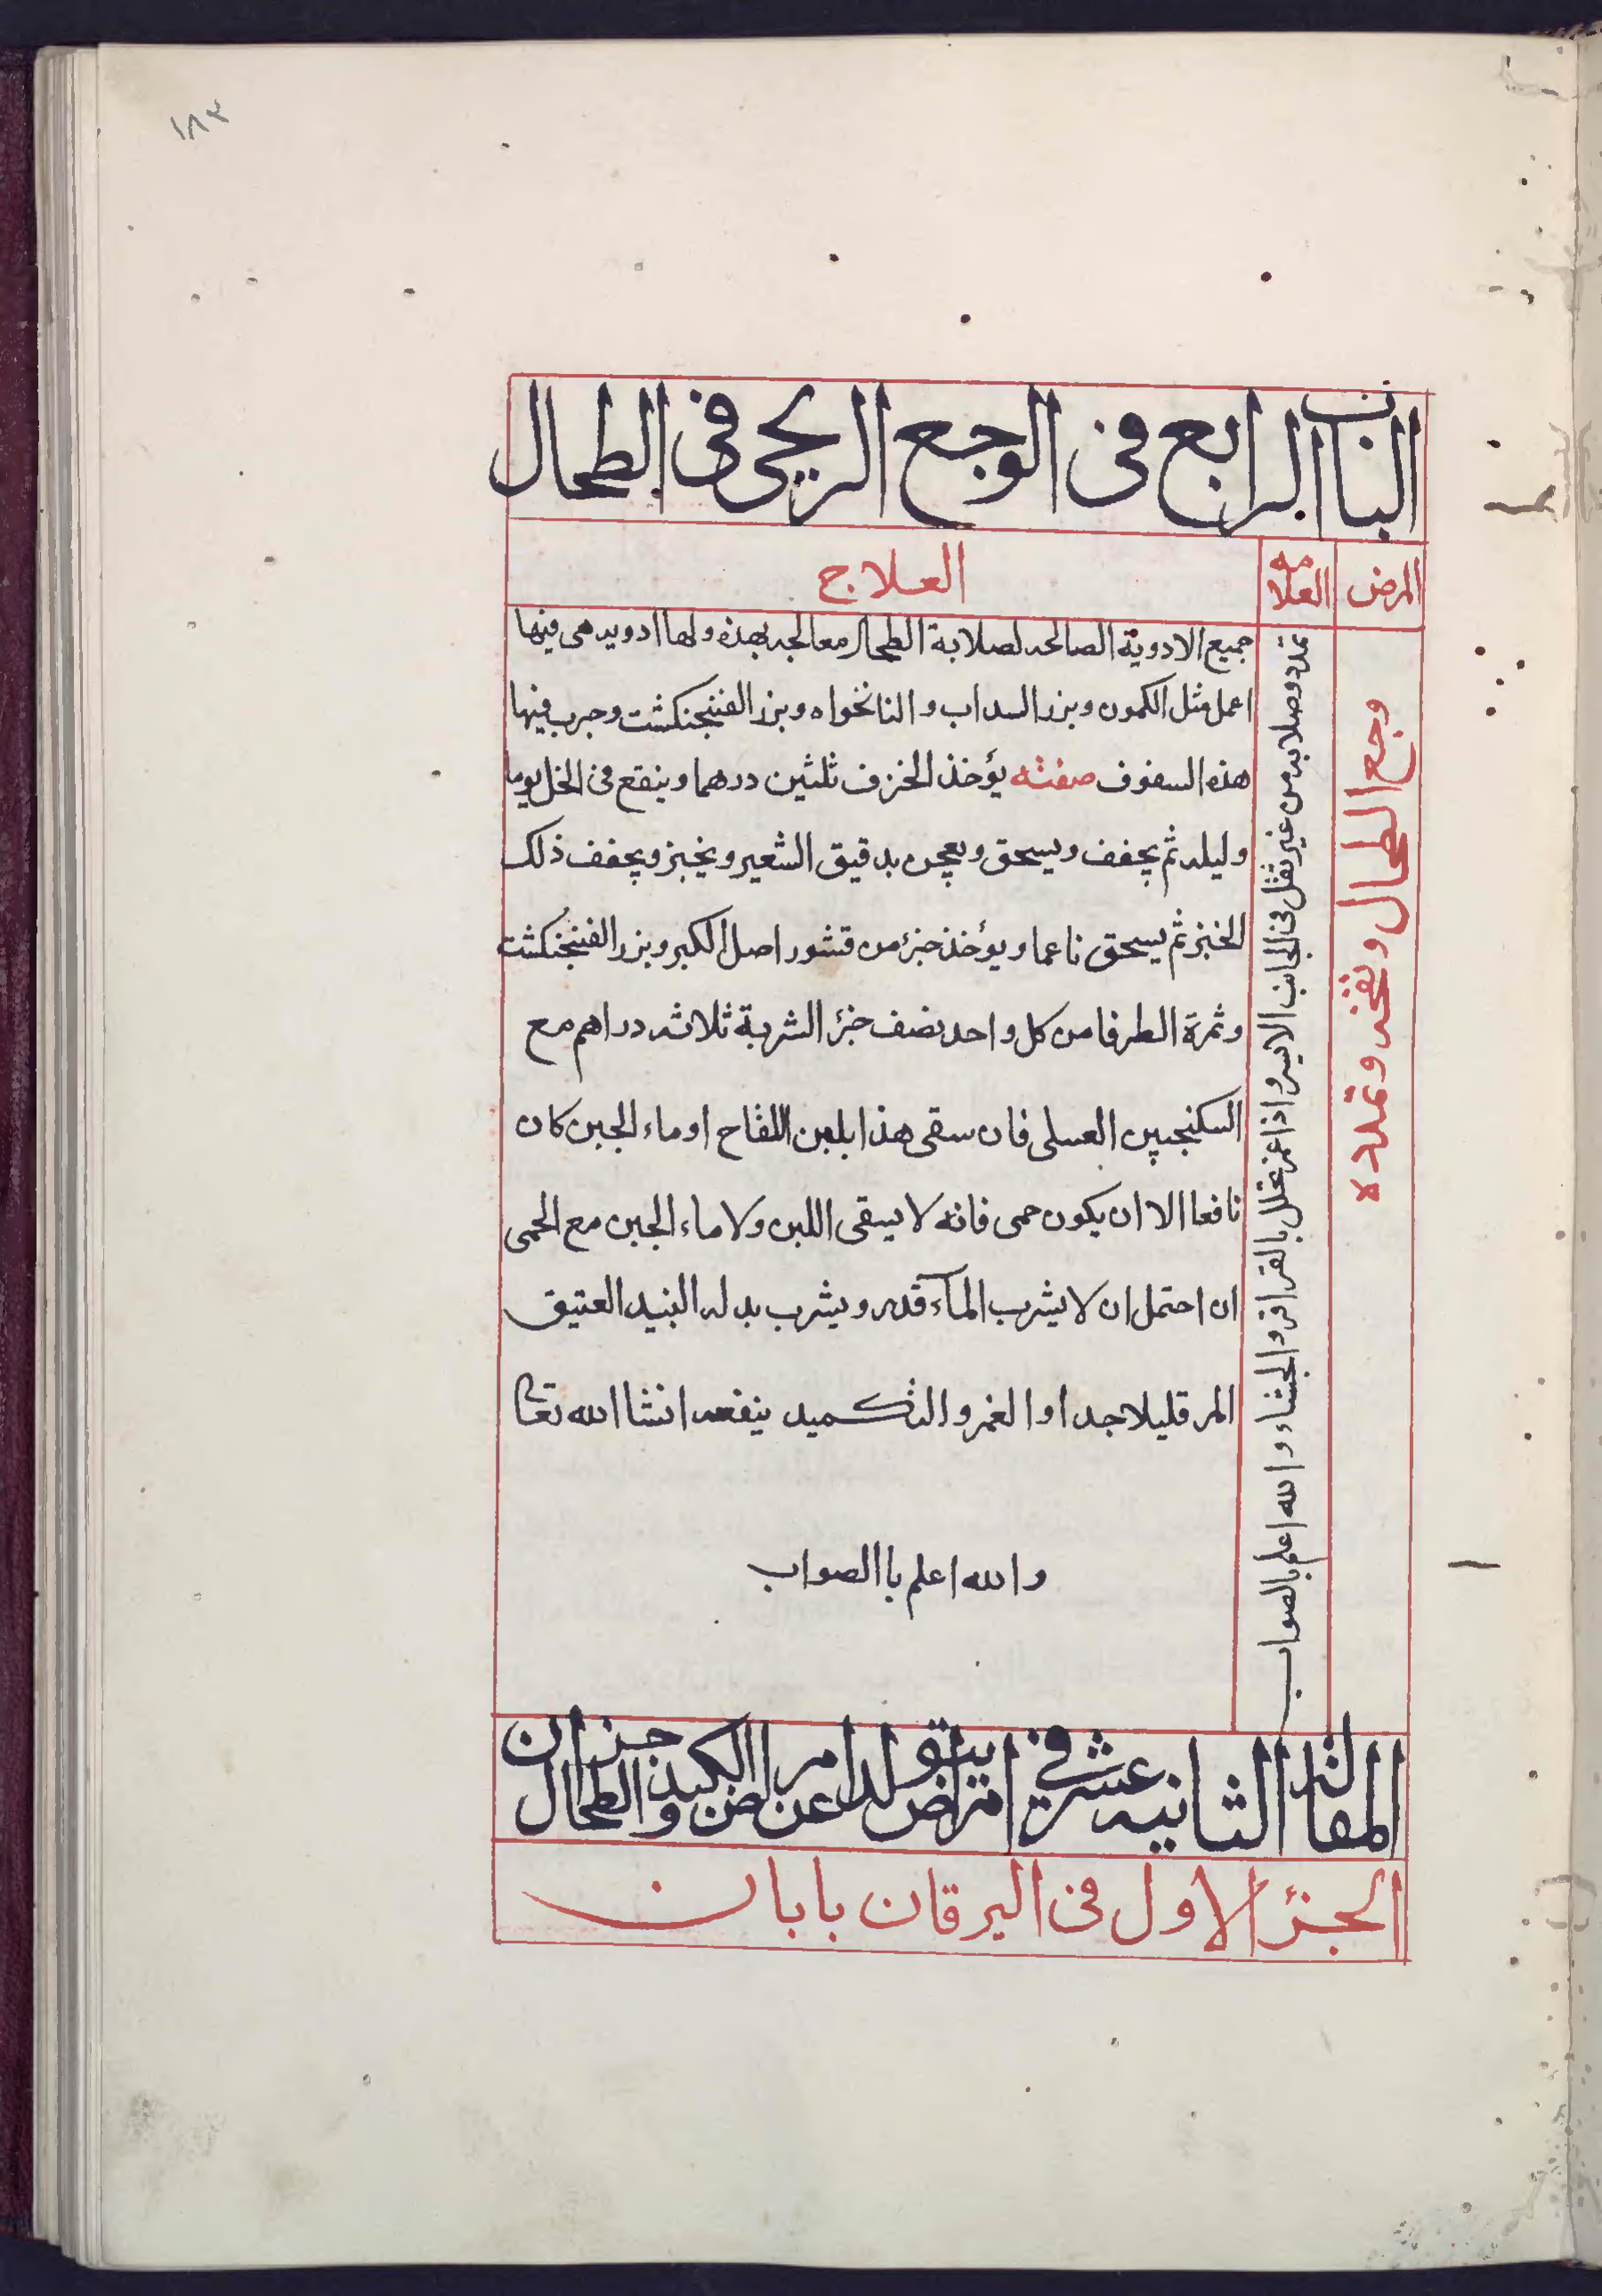 ١٨٣
الباب الرابع فى الوجع الريحى فى الطحال
المرض
العلامه
العلاج
وجع الطحال ونفخه وتمدده
تمدد وصلابه من غير ثقل فى الجانب الايسر واذا غمز تحلل بالقراقر والجشاء والله اعلم بالصواب
جميع الادوية الصالحه لصلابة الطحال معالجه بهذه ولها ادويه هى فيها
اعمل مثل الكمون وبزر السداب والنانخواه وبزر الفنجنكشت وجرب فيها
هذه السفوف صفته يؤخذ الخزف ثلثين درهما وينقع فى الخل يوما
وليله ثم يجفف ويسحق ويعجن بدقيق الشعير ويخبز ويجفف ذلك
الخبز ثم يسحق ناعما ويؤخذ جزء من قشور اصل الكبر وبزر الفنجنكشت
وثمرة الطرفا من كل واحد نصف جزء الشربة ثلاثه دراهم مع
السكنجبين العسلى فان سقى هذا بلبن اللقاح او ماء الجبن كان
نافعا الا ان يكون حمى فانه لا يسقى اللبن ولا ماء الجبن مع الحمى
ان احتمل ان لا يشرب المآء قدر ويشرب بدله النبيد العتيق
المر قليلا جدا والغمز والتكميد ينفعه انشا الله تعالى
والله اعلم باالصواب
المقالة الثانيه عشر فى امراض يتولد عن امراض الكبد والطحال جزءان
الجزء الاول فى اليرقان بابان